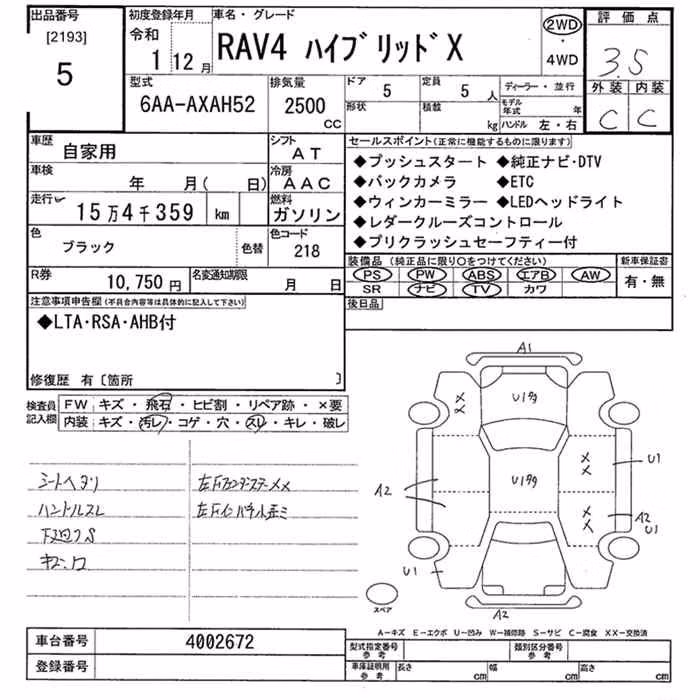 出品番号
[2193]
5
初度登録年月
令和
1 12 月
車名・グレード
RAV4 ハイブリッド X
2WD
・
4WD
評価点
3.5
外装 内装
C C
型式
6AA-AXAH52
排気量
2500
CC
ドア
5
定員
5 人
形状
積載
kg
ディーラー・並行
モデル年式 年
ハンドル 左・右
車歴
自家用
シフト
AT
車検
年 月( 日)
冷房
AAC
走行
15万4千359 km
燃料
ガソリン
色
ブラック
色替
色コード
218
R券
10,750 円
名変通知期限
月 日
セールスポイント(正常に機能するものに限ります)
◆プッシュスタート ◆純正ナビ・DTV
◆バックカメラ ◆ETC
◆ウィンカーミラー ◆LEDヘッドライト
◆レダークルーズコントロール
◆プリクラッシュセーフティー付
装備品 (純正品に限り○をつけてください)
PS PW ABS エアB AW
SR ナビ TV カワ
新車保証書
有・無
後日品
注意事項申告欄(不具合内容等は具体的に記入して下さい)
◆LTA・RSA・AHB付
修復歴 有〔箇所 〕
検査員記入欄
FW キズ・飛石・ヒビ割・リペア跡・×要
内装 キズ・汚レ・コゲ・穴・スレ・キレ・破レ
シートヘタリ
ハンドルスレ
下廻りS
A1
U1タ
U1タ
××
××
××
U1
A2
A2
U1
U1
A2
スペア
A-キズ E-エクボ U-凹み W-補修跡 S-サビ C-腐食 XX-交換済
車台番号
4002672
登録番号
型式指定番号
参考
類別区分番号
参考
車庫証明用
参考
長さ cm
幅 cm
高さ cm